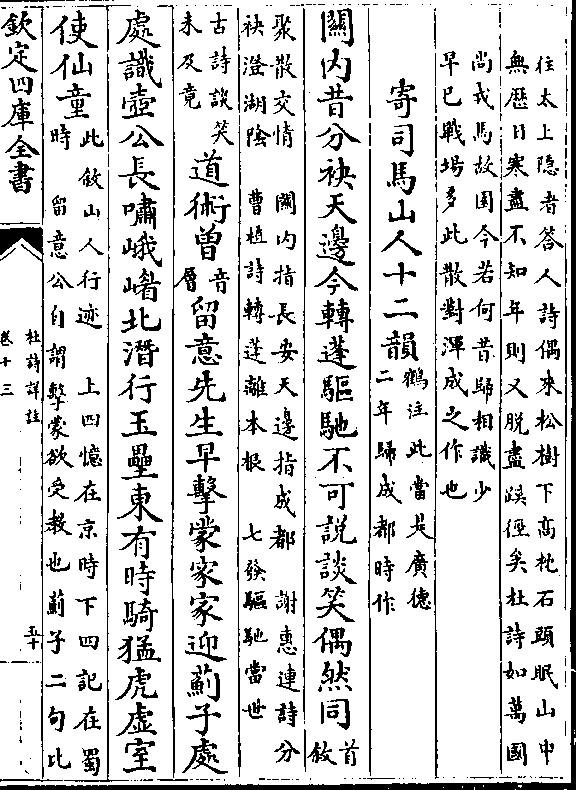 往太上隐者答人詩偶來松樹下高枕石頭眠山中
無歴日寒盡不知年則又脱盡蹊徑矣杜詩如萬國
尚戎馬故園今若何昔歸相識少
早已戰場多此散對渾成之作也
寄司馬山人十二韻
鶴注此當是廣德
二年歸成都時作
關内昔分袂天邊今轉蓬驅馳不可説談笑偶然同
首
敘
聚散交情　關内指長安天邊指成都　謝惠連詩分
袂澄湖陰　曹植詩轉蓬離本根　七發驅馳當世
古詩談笑
未及竟
道術曾
音
層
留意先生早擊蒙家家迎薊子處
處識壺公長嘯峨嵋北潛行玉壘東有時騎猛虎虚室
使仙童
此敘山人行迹　上四憶在京時下四記在蜀
時　留意公自謂擊蒙欲受教也薊子二句比
欽定四庫全書
杜詩詳註
卷十三
五十